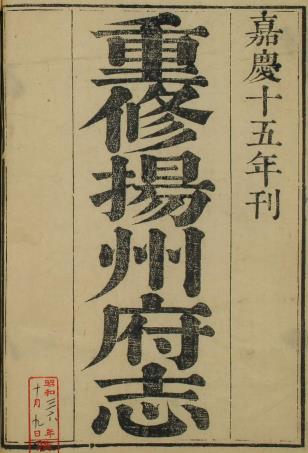 嘉慶十五年刊
重修揚州府志
昭和三六年
十月九日